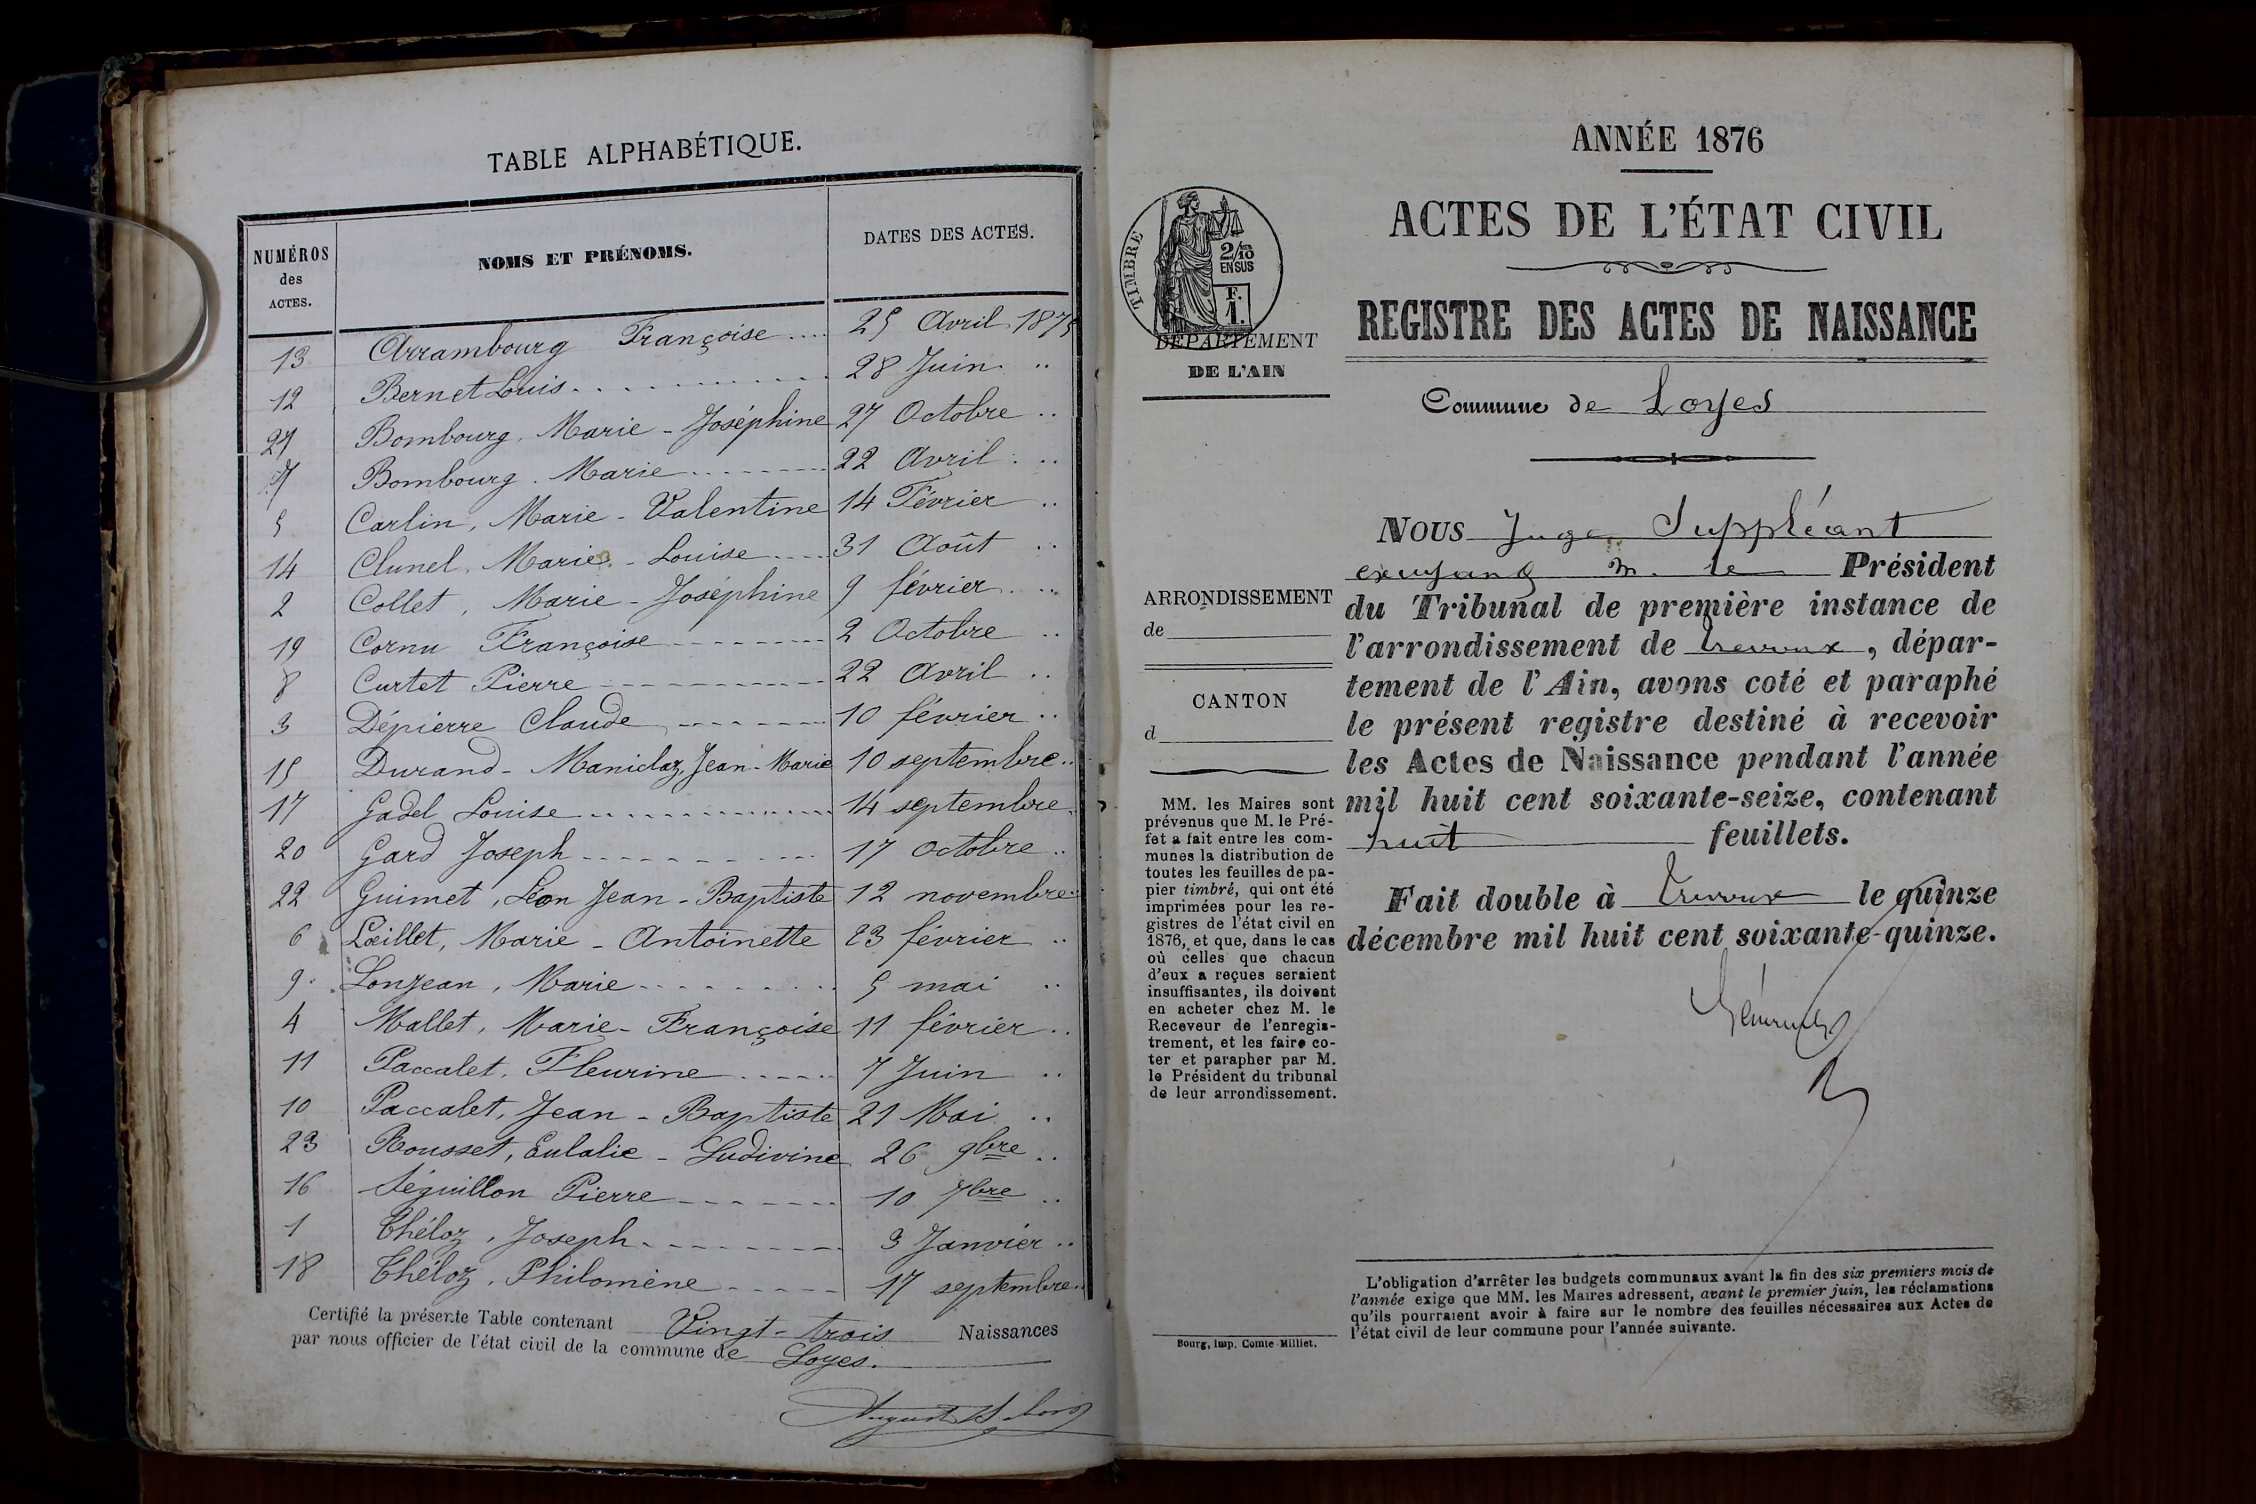 TABLE ALPHABÉTIQUE.
NUMÉROS
des
ACTES.
NOMS ET PRÉNOMS.
DATES DES ACTES.
13 Arrambourg Françoise 25 Avril 1875
12 Bernet Louis 28 Juin "
21 Bombourg, Marie-Joséphine 27 Octobre "
7 Bombourg. Marie 22 Avril "
5 Carlin, Marie-Valentine 14 Février "
14 Clunel, Marie-Louise 31 Août "
2 Collet, Marie-Joséphine 9 février "
19 Cornu Françoise 2 Octobre "
8 Curtet Pierre 22 Avril "
3 Dépierre Claude 10 février "
15 Durand-Maniclaz, Jean-Marie 10 septembre "
17 Gadel Louise 14 septembre "
20 Gard Joseph 17 octobre "
22 Guimet, Léon Jean-Baptiste 12 novembre "
6 Lœillet, Marie-Antoinette 23 février "
9 Lonjean, Marie 5 mai "
4 Mallet, Marie-Françoise 11 février "
11 Paccalet, Fleurine 7 Juin "
10 Paccalet, Jean-Baptiste 21 Mai "
23 Rousset, Eulalie-Ludivine 26 9bre "
16 Séguillon Pierre 10 7bre "
1 Théloz, Joseph 3 Janvier "
18 Théloz, Philomène 17 septembre "
Certifié la présente Table contenant Vingt-trois Naissances
par nous officier de l'état civil de la commune de Loyes.
ANNÉE 1876
ACTES DE L'ÉTAT CIVIL
REGISTRE DES ACTES DE NAISSANCE
TIMBRE
2/10
EN SUS
F.
1.
DÉPARTEMENT
DE L'AIN
Commune de Loyes
NOUS Juge Suppléant
excusant M. le Président
du Tribunal de première instance de
l'arrondissement de Trevoux, dépar-
tement de l'Ain, avons coté et paraphé
le présent registre destiné à recevoir
les Actes de Naissance pendant l'année
mil huit cent soixante-seize, contenant
huit feuillets.
Fait double à Trevoux le quinze
décembre mil huit cent soixante-quinze.
ARRONDISSEMENT
de
CANTON
d
MM. les Maires sont
prévenus que M. le Pré-
fet a fait entre les com-
munes la distribution de
toutes les feuilles de pa-
pier timbré, qui ont été
imprimées pour les re-
gistres de l'état civil en
1876, et que, dans le cas
où celles que chacun
d'eux a reçues seraient
insuffisantes, ils doivent
en acheter chez M. le
Receveur de l'enregis-
trement, et les faire co-
ter et parapher par M.
le Président du tribunal
de leur arrondissement.
L'obligation d'arrêter les budgets communaux avant la fin des six premiers mois de
l'année exige que MM. les Maires adressent, avant le premier juin, les réclamations
qu'ils pourraient avoir à faire sur le nombre des feuilles nécessaires aux Actes de
l'état civil de leur commune pour l'année suivante.
Bourg, imp. Comte-Milliet.